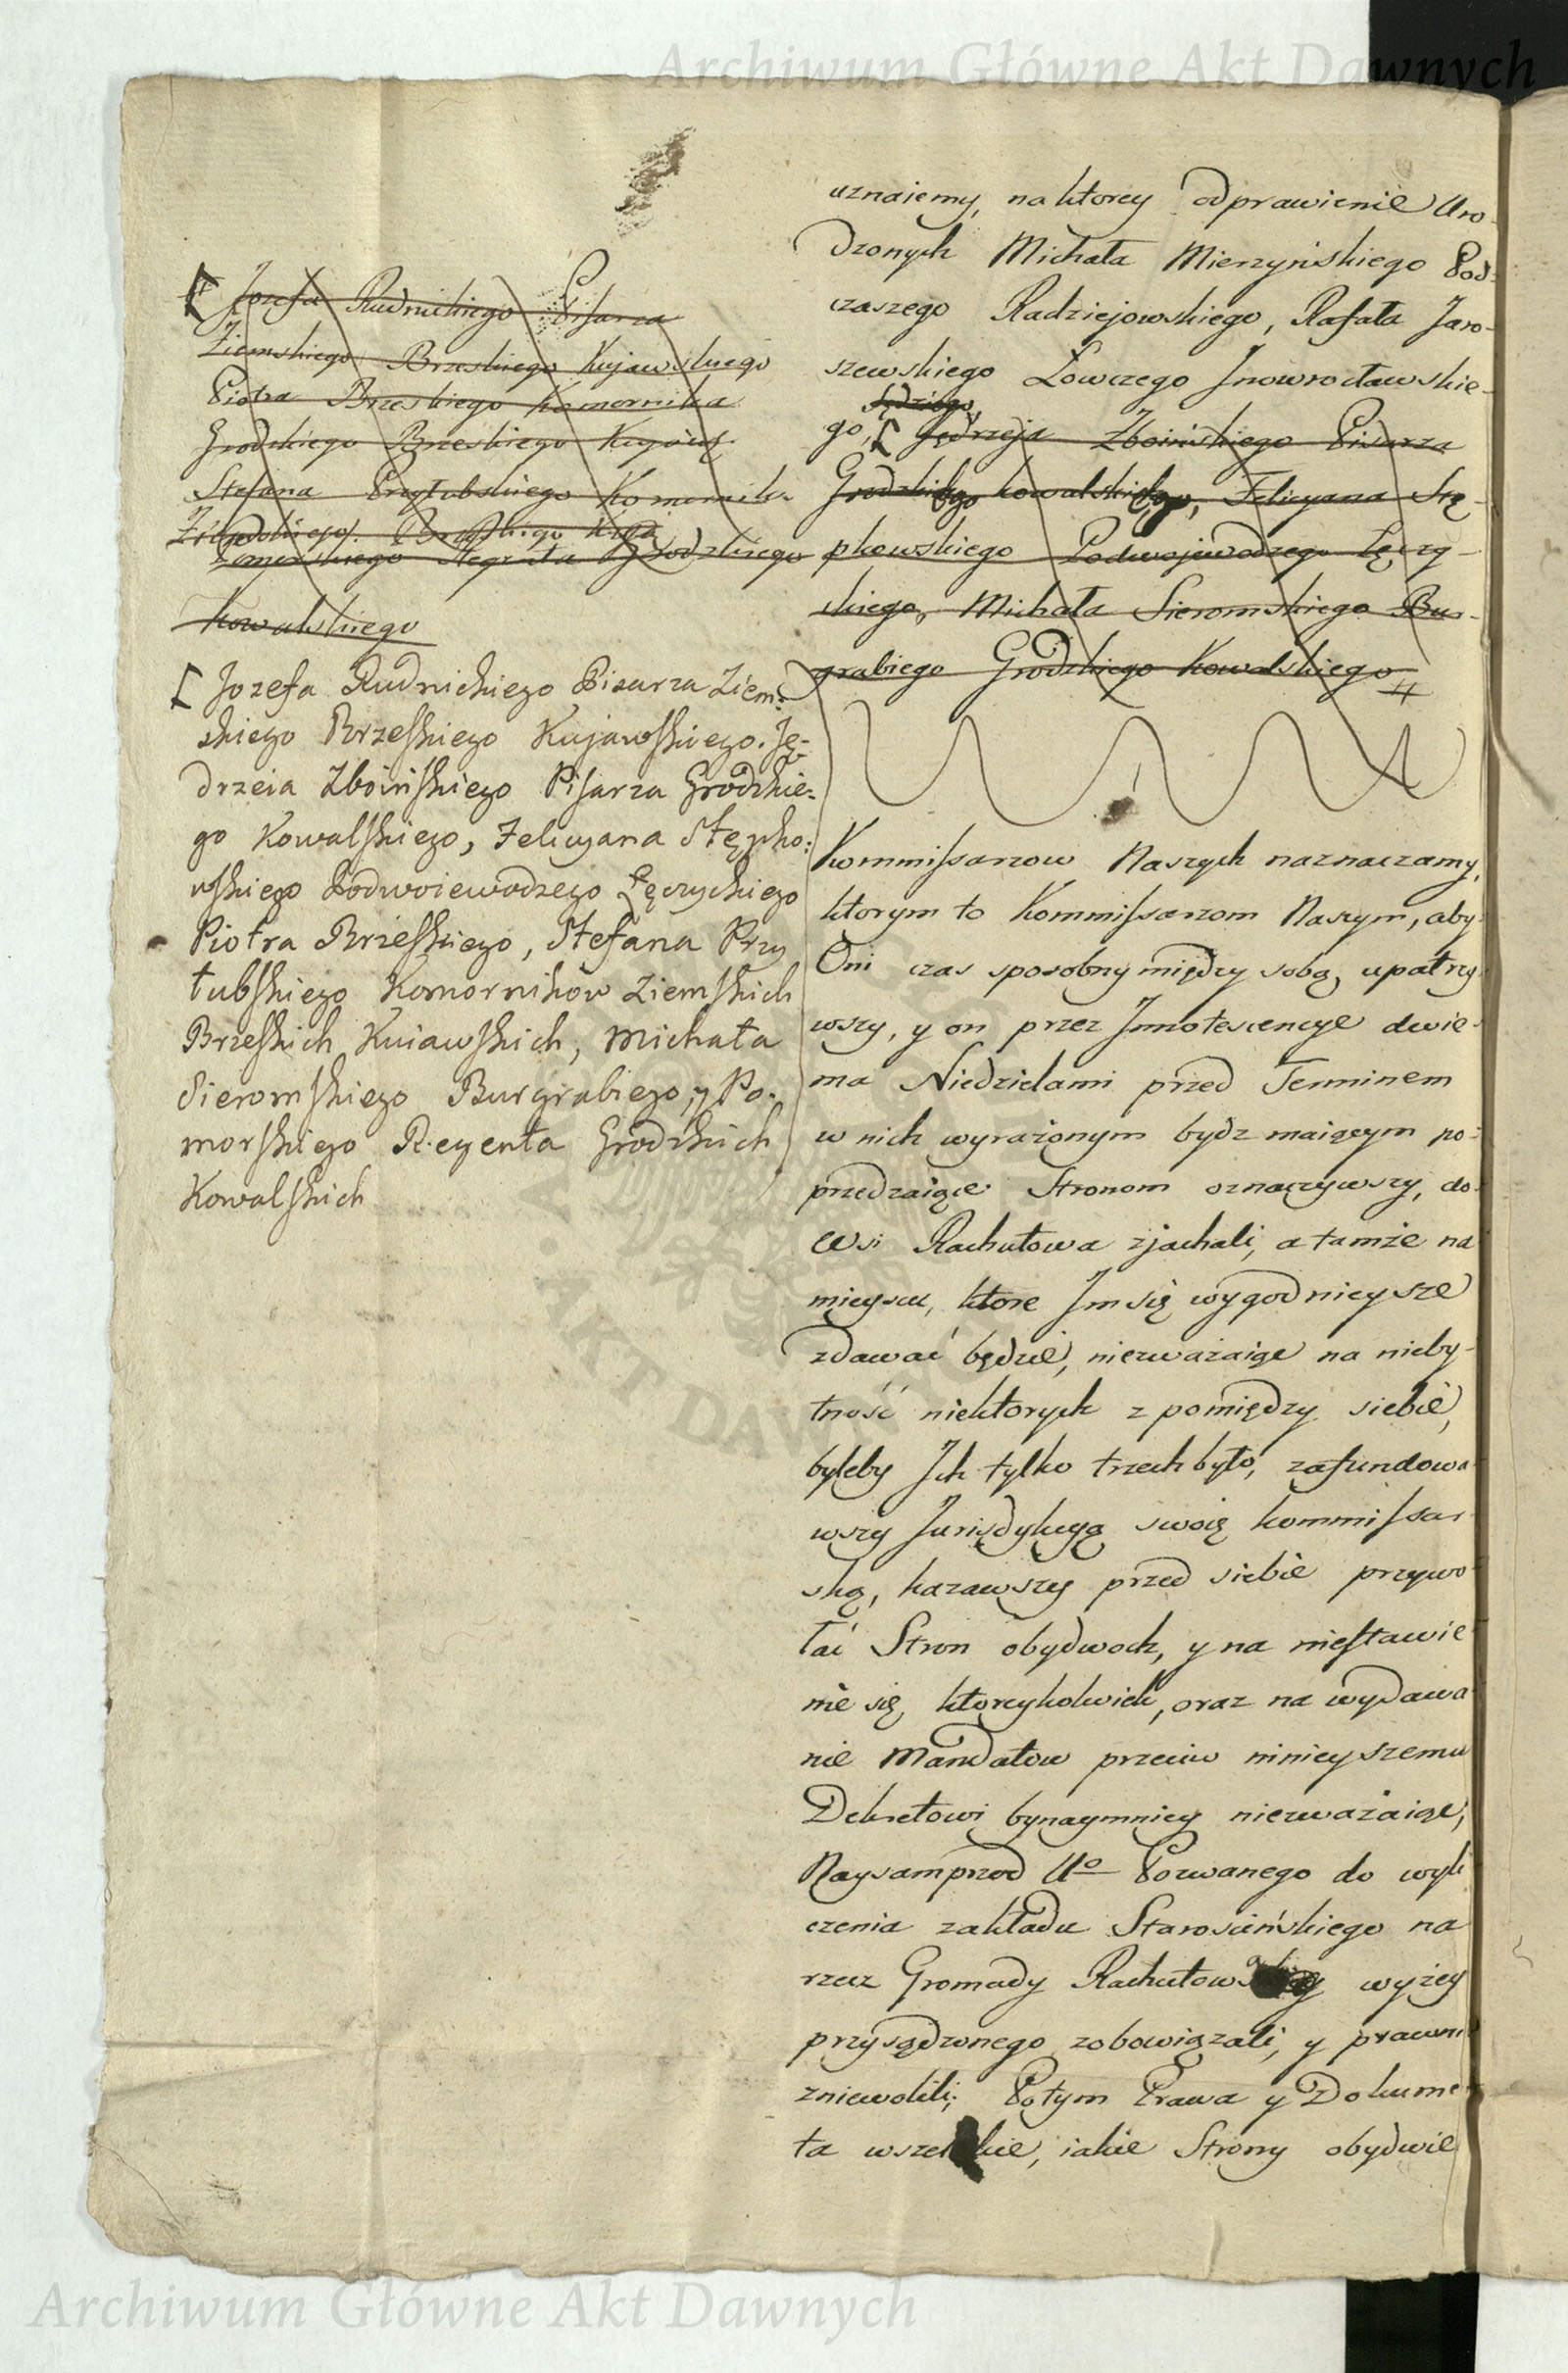 Archiwum Główne Akt Dawnych
uznaiemy, na ktorey odprawienie Uro-
dzonych Michała Mierzyńskiego Pod-
czaszego Radziejowskiego, Rafała Jaro-
szewskiego Łowczego Jnowrocławskie-
Sędziego,
go, [ Jędrzeja Zboińskiego Pisarza
Grodzkiego Kowalskiego, Felicyana Stę-
pkowskiego Podwojewodzego Łęczy-
ckiego, Michała Sieromskiego Bur-
grabiego Grodzkiego Kowalskiego #
[ Jozefa Rudnickiego Pisarza
Ziemskiego Brzeskiego Kujawskiego
Piotra Brzeskiego Komornika
Grodzkiego Brzeskiego Kujaws.
Stefana Przyłubskiego Komornika
Ziemskiego Brzeskiego Kuja
Pomorskiego Regenta Grodzkiego
Kowalskiego
[ Jozefa Rudnickiego Pisarza Ziem-
skiego Brzeskiego Kujawskiego. Ję-
drzeia Zboińskiego Pisarza Grodzkie-
go Kowalskiego, Felicyana Stępko-
wskiego Podwoiewodzego Łęczyckiego
Piotra Brzeskiego, Stefana Przy
łubskiego Komornikow Ziemskich
Brzeskich Kuiawskich, Michała
Sieromskiego Burgrabiego, y Po-
morskiego Regenta Grodzkich
Kowalskich
Kommissarzow Naszych naznaczamy,
ktorym to Kommissarzom Naszym, aby
Oni czas sposobny między sobą upatrzy
wszy, y on przez Jnnotescencye dwie-
ma Niedzielami przed Terminem
w nich wyrażonym bydz maiącym po-
przedzaiące Stronom oznaczywszy, do
Wsi Rachutowa zjachali, a tamże na
mieyscu, ktore Jm się wygodnieysze
zdawać będzie, niezważaiąc na nieby-
tność niektorych z pomiędzy siebie,
byleby Jch tylko trzech było, zafundowa
wszy Jurisdykcyą swoię kommissar
ską, kazawszy przed siebie przywo
łać Stron obydwoch, y na niestawie
nie się ktoreykolwiek, oraz na wydawa
nie Mandatow przeciw ninieyszemu
Dekretowi bynaymniey niezważaiąc,
Naysamprzod Uo Pozwanego do wyli
czenia zakładu Starościńskiego na
rzecz Gromady Rachutow wyżey
przysądzonego zobowiązali, y prawnie
zniewolili; Potym Prawa y Dokume
ta wszelkie, iakie Strony obydwie
AKT DAWNYCH
Archiwum Główne Akt Dawnych